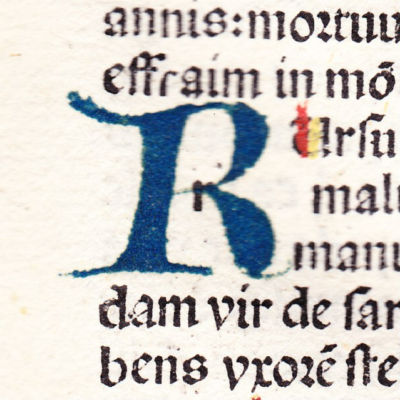 annis: mortuu
effraim in mō
R Ursu
r malu
manu
dam vir de sar
bens vxorē ste